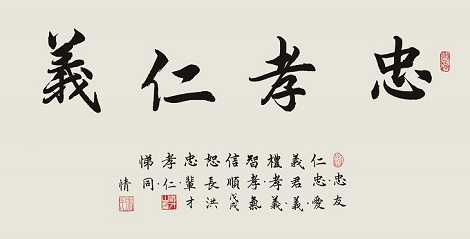 忠孝仁義
仁義禮智信恕忠孝悌
忠·忠君·孝孝順長輩·仁·同情
友愛·義·義氣戊戌洪才